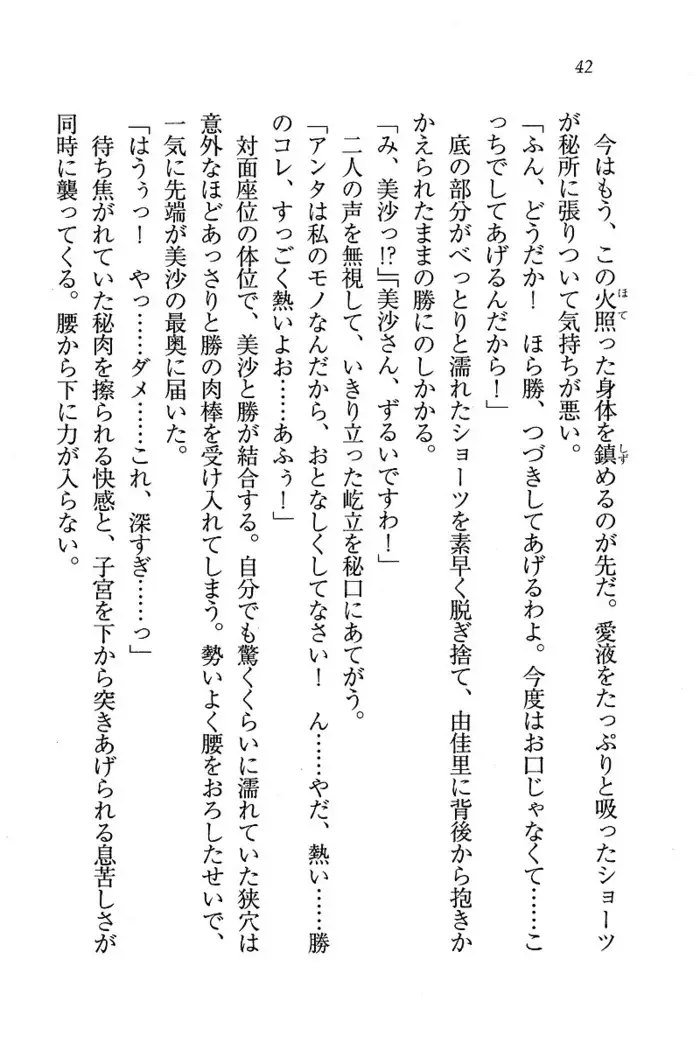 42
ほて しず
今はもう、この火照った身体を鎮めるのが先だ。愛液をたっぷりと吸ったショーツ
が秘所に張りついて気持ちが悪い。
「ふん、どうだか！　ほら勝、つづきしてあげるわよ。今度はお口じゃなくて……こ
っちでしてあげるんだから！」
底の部分がべっとりと濡れたショーツを素早く脱ぎ捨て、由佳里に背後から抱きか
かえられたままの勝にのしかかる。
「み、美沙っ!?」「美沙さん、ずるいですわ！」
二人の声を無視して、いきり立った屹立を秘口にあてがう。
「アンタは私のモノなんだから、おとなしくしてなさい！　ん……やだ、熱い……勝
のコレ、すっごく熱いよお……あふぅ！」
対面座位の体位で、美沙と勝が結合する。自分でも驚くくらいに濡れていた狭穴は
意外なほどあっさりと勝の肉棒を受け入れてしまう。勢いよく腰をおろしたせいで、
一気に先端が美沙の最奥に届いた。
「はうぅっ！　やっ……ダメ……これ、深すぎ……っ」
待ち焦がれていた秘肉を擦られる快感と、子宮を下から突きあげられる息苦しさが
同時に襲ってくる。腰から下に力が入らない。